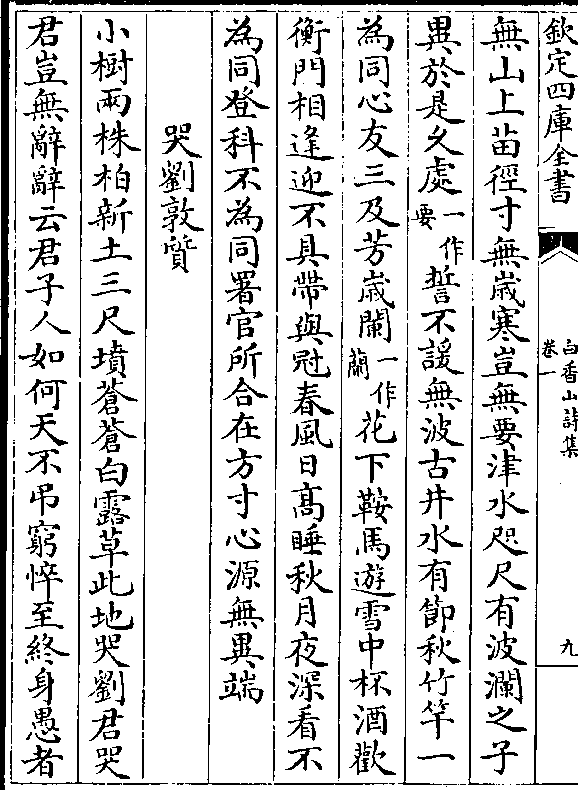 欽定四庫全書
白香山詩集
卷一
九
無山上苗徑寸無歲寒豈無要津水咫尺有波瀾之子
異於是乆處一作要誓不諼無波古井水有節秋竹竿一
為同心友三及芳歲闌一作蘭花下鞍馬遊雪中杯酒歡
衡門相逢迎不具帶與冠春風日髙睡秋月夜深看不
為同登科不為同署官所合在方寸心源無異端
哭劉敦質
小樹兩株柏新土三尺墳蒼蒼白露草此地哭劉君哭
君豈無辭辭云君子人如何天不弔窮悴至終身愚者